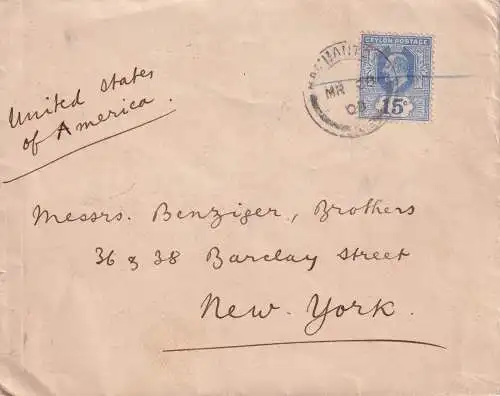 CEYLON POSTAGE
15c
MR
United States
of America.
Messrs. Benziger, Brothers
36 & 38 Barclay Street
New. York.